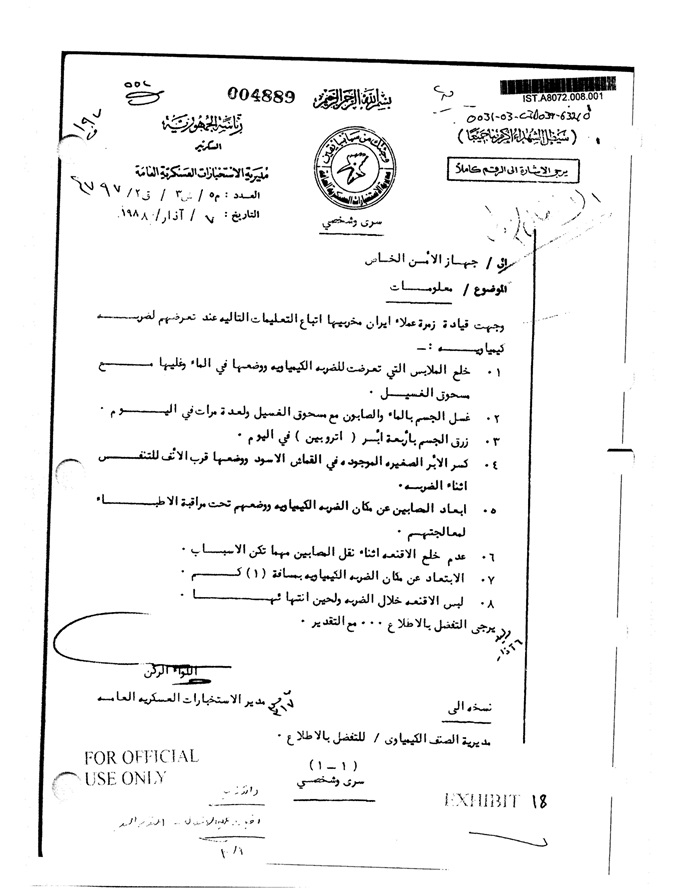 004889
بسم الله الرحمن الرحيم
IST.A8072.008.001
رئاسة الجمهورية
السكرتير
مديرية الاستخبارات العسكرية العامة
العدد : م٥ / ش٣ / ق٢ /
التاريخ : ٧ / آذار / ١٩٨٨
(سيبقى الشهداء أكرم منا جميعا)
يرجى الاشارة الى الرقم كاملاً
سرى وشخصي
الى / جهـاز الأمـن الخـاص
الموضوع / معلومـــات
وجهت قيادة زمرة عملاء ايران مخربيها اتباع التعليمات التاليه عند تعرضهم لضربـــه
كيمياويـــه :ـ
٠١ خلع الملابس التي تعرضت للضربه الكيمياويه ووضعها في الماء وغليها مـــع
مسحوق الغسيـــل ٠
٠٢ غسل الجسم بالماء والصابون مع مسحوق الغسيل ولعدة مرات في اليـــوم ٠
٠٣ زرق الجسم بأربعة ابـر ( اتروبين ) في اليوم ٠
٠٤ كسر الابر الصغيره الموجوده في القماش الاسود ووضعها قرب الأنف للتنفس
اثناء الضربه٠
٠٥ ابعاد المصابين عن مكان الضربه الكيمياويه ووضعهم تحت مراقبة الاطبـــاء
لمعالجتهـم ٠
٠٦ عدم خلع الاقنعه اثناء نقل المصابين مهما تكن الاسبـــاب ٠
٠٧ الابتعاد عن مكان الضربه الكيمياويه بمسافة (١) كـــم ٠
٠٨ لبس الاقنعه خلال الضربه ولحين انتهائهـــا ٠
يرجى التفضل بالاطلاع ٠٠٠ مع التقدير ٠
اللواء الركن
مدير الاستخبارات العسكريه العامـــه
نسخه الى
مديرية الصنف الكيمياوى / للتفضل بالاطلاع ٠
(١ــ١)
سرى وشخصي
FOR OFFICIAL
USE ONLY
EXHIBIT 18